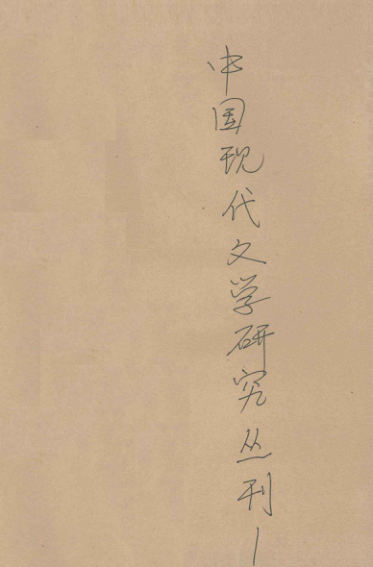 中国现代文学研究丛刊1